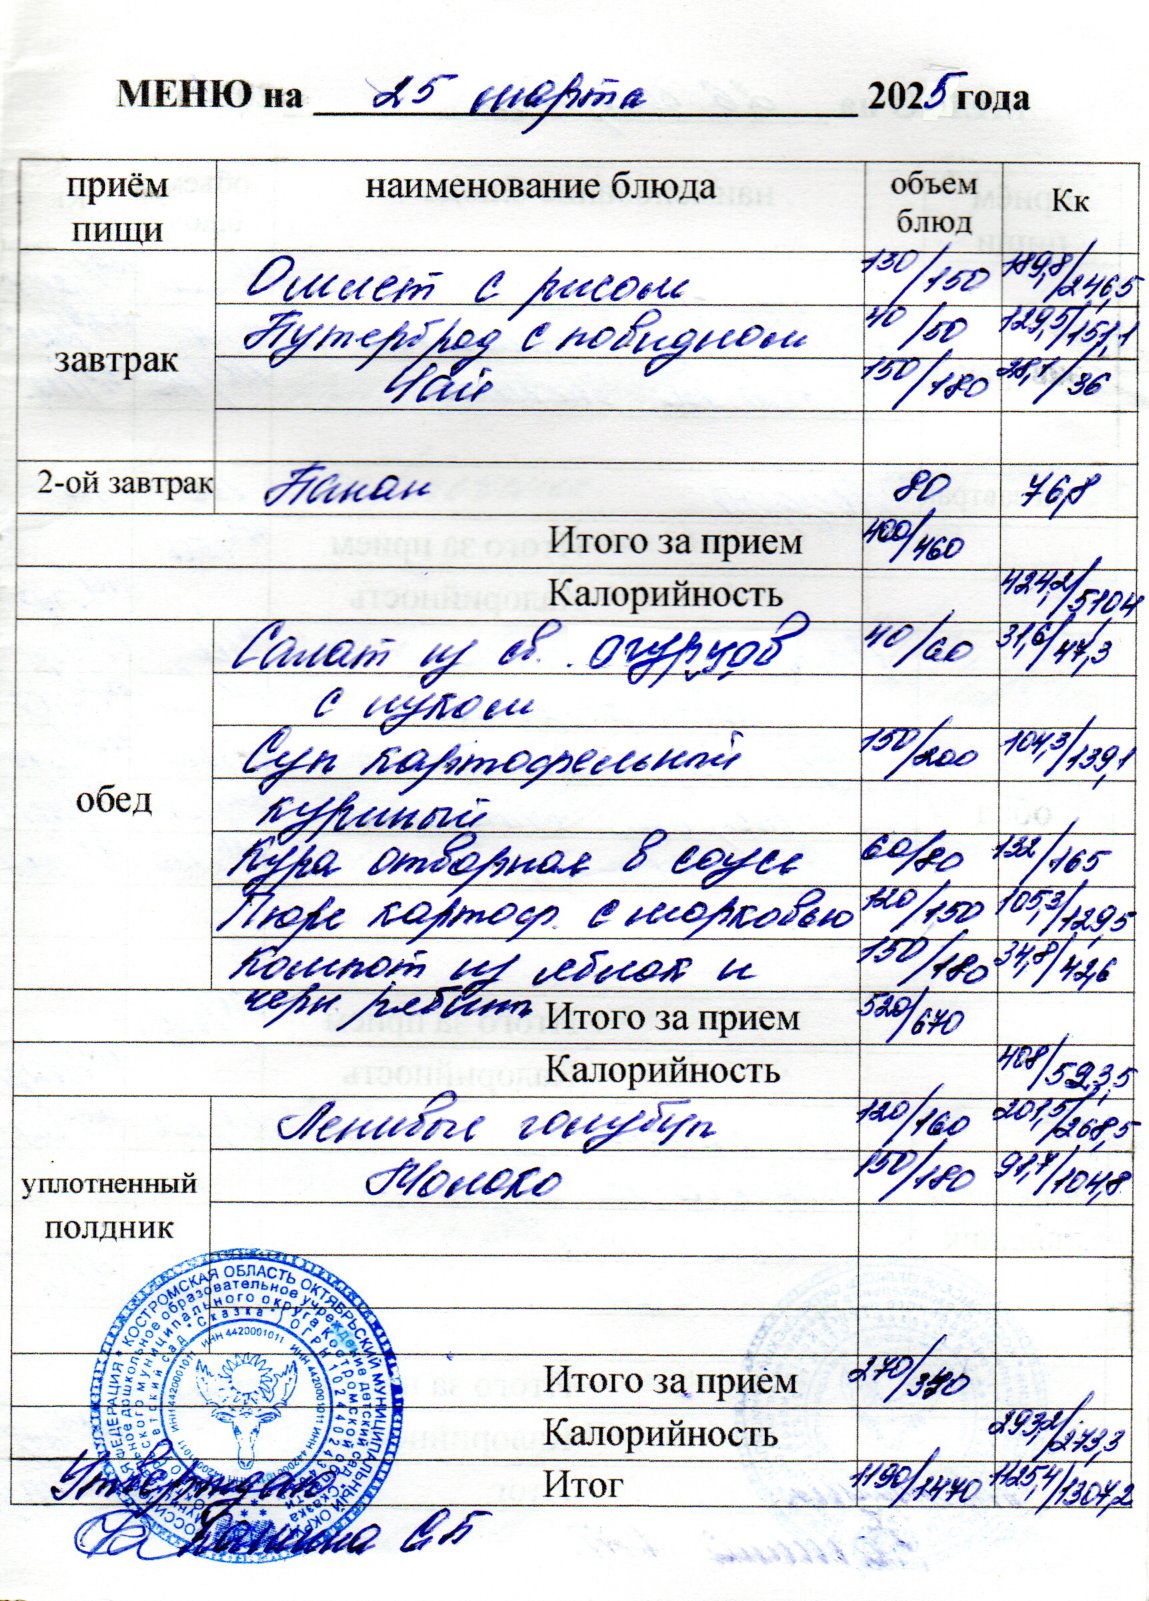 МЕНЮ на 25 марта 2025 года
приём пищи наименование блюда объем блюд Кк
завтрак
Омлет с рисом 130/150 189,8/246,5
Бутерброд с повидлом 40/50 129,5/151,1
Чай 150/180 28,1/36
2-ой завтрак Банан 80 76,8
Итого за прием 400/460
Калорийность 424,2/510,4
обед
Салат из св. огурцов 40/60 31,6/47,3
с луком
Суп картофельный 150/200 104,3/139,1
куриный
Кура отворная в соусе 60/80 132/165
Пюре картоф. с морковью 120/150 105,3/129,5
Компот из яблок и 150/180 34,8/42,6
черн рябины
Итого за прием 520/670
Калорийность 408/523,5
уплотненный полдник
Ленивые голубцы 120/160 201,5/268,5
Молоко 150/180 91,7/104,8
Итого за прием 270/340
Калорийность 293,2/273,3
Итог 1190/1470 1125,4/1307,2
Утверждаю
Панина С.Б